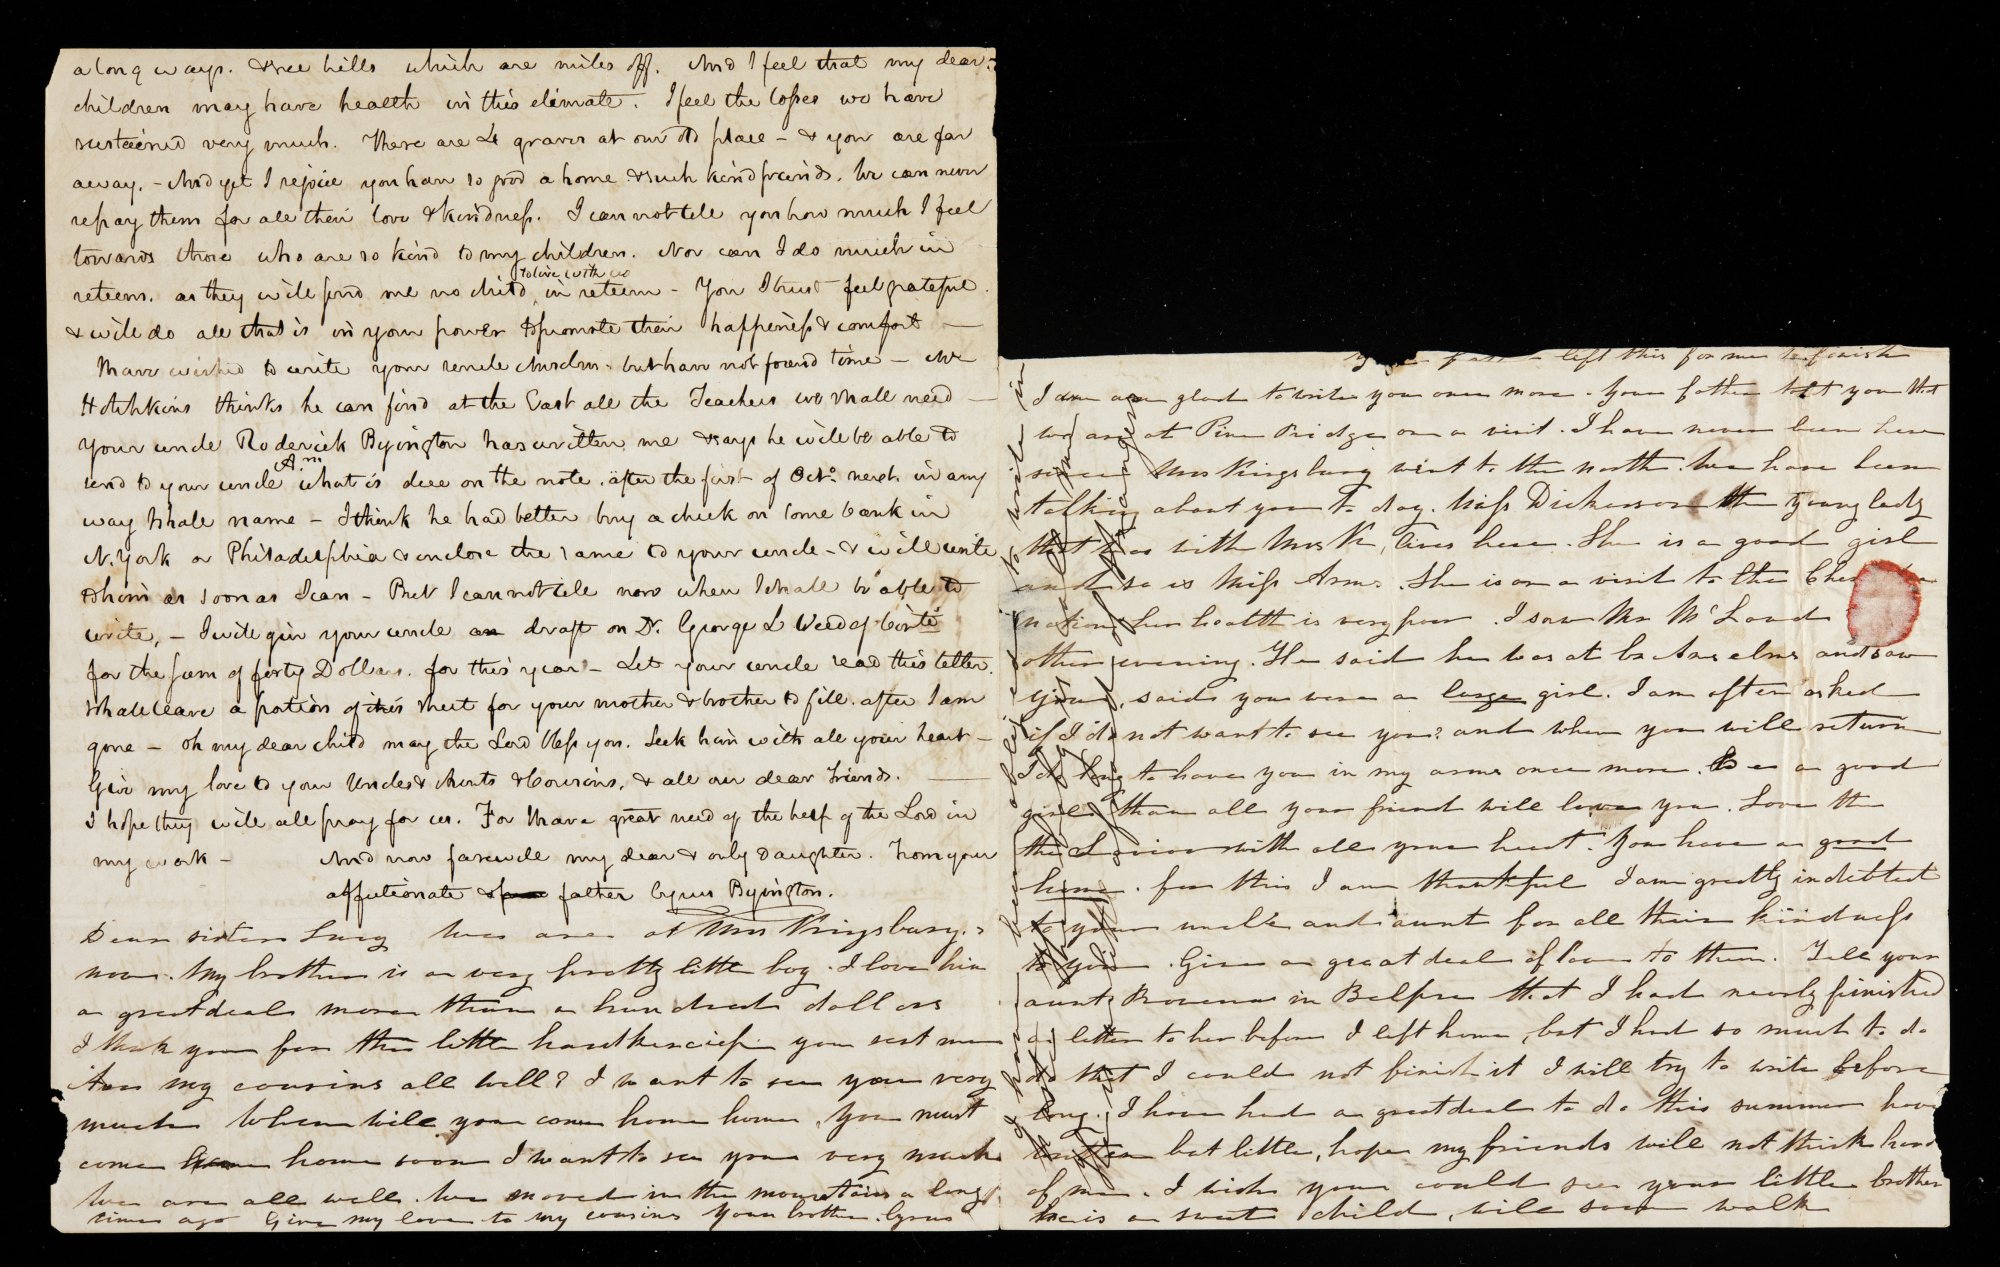 a long ways. & see hills which are miles off. And I feel that my dear
children may have health in this climate. I feel the losses we have
sustained very much. There are 4 graves at our old place - & you are far
away. - And yet I rejoice you have so good a home & such kind friends. We can never
repay them for all their love & kindness. I can not tell you how much I feel
towards those who are so kind to my children. Nor can I do much in
to live with us
return. as they will send me no child in return - You I trust feel grateful.
& will do all that is in your power to promote their happiness & comfort -
I have wished to write your uncle Anselm. but have not found time - Mr
Hotchkins thinks he can find at the East all the Teachers we shall need -
Your uncle Roderick Byington has written me & says he will be able to
send to your uncle Am what is due on the note. after the first of Octo. next. in any
way I shall name - I think he had better buy a check on some bank in
N. York or Philadelphia & enclose the same to your uncle - & I will write
to him as soon as I can - But I can not tell now when I shall be able to
write, - I will give your uncle an draft on Dr. George L Weed of Cinti
for the sum of forty Dollars. for this year - Let your uncle read this letter.
I shall leave a portion of this sheet for your mother & brother to fill. after I am
gone - Oh my dear child may the Lord bless you. Seek him with all your heart -
Give my love to your Uncles & Aunts & Cousins, & all our dear Friends.
I hope they will all pray for us. For I have great need of the help of the Lord in
my work - And now farewell my dear & only daughter. From your
affectionate father Cyrus Byington.
Dear sister Lucy We are at Mrs Kingsbury.s
now. My brother is a very pretty little boy. I love him
a great deal more than a hundred dollars
I thank you for the little handkerchief you sent me
Are my cousins all well? I want to see you very
much When will you come home home, You must
come home soon I want to see you very much
We are all well. We moved in the mountains a long
time ago Give my love to my cousins Your brother. Cyrus
left this for me to finish
I am glad to write you once more. Your father told you that
we are at Pine Ridge on a visit. I have never been here
since Mrs Kingsbury went to the north. We have been
talking about you to day. Miss Dickinson the young lady
that was with Mrs K, lives here. She is a good girl
and so is Miss Arms. She is on a visit to the
nation, her health is very poor. I saw Mr McLoud
other evening. He said he was at br Anselms and saw
you, said you were a large girl. I am often asked
if I do not want to see you? and when you will return
I do long to have you in my arms once more. Be a good
girl then all your friend will love you. Love the
the Savior with all your heart. You have a good
home. for this I am thankful I am greatly indebted
to your uncle and aunt for all their kindness
to you. Give a great deal of love to them. Tell your
aunt in Belpre that I had nearly finished
a letter to her before I left home, but I had so much to do
that I could not finish it I will try to write before
long. I have had a great deal to do this summer have
written but little, hope my friends will not think hard
of me. I wish you could see your little brother
he is a sweet child, will soon walk